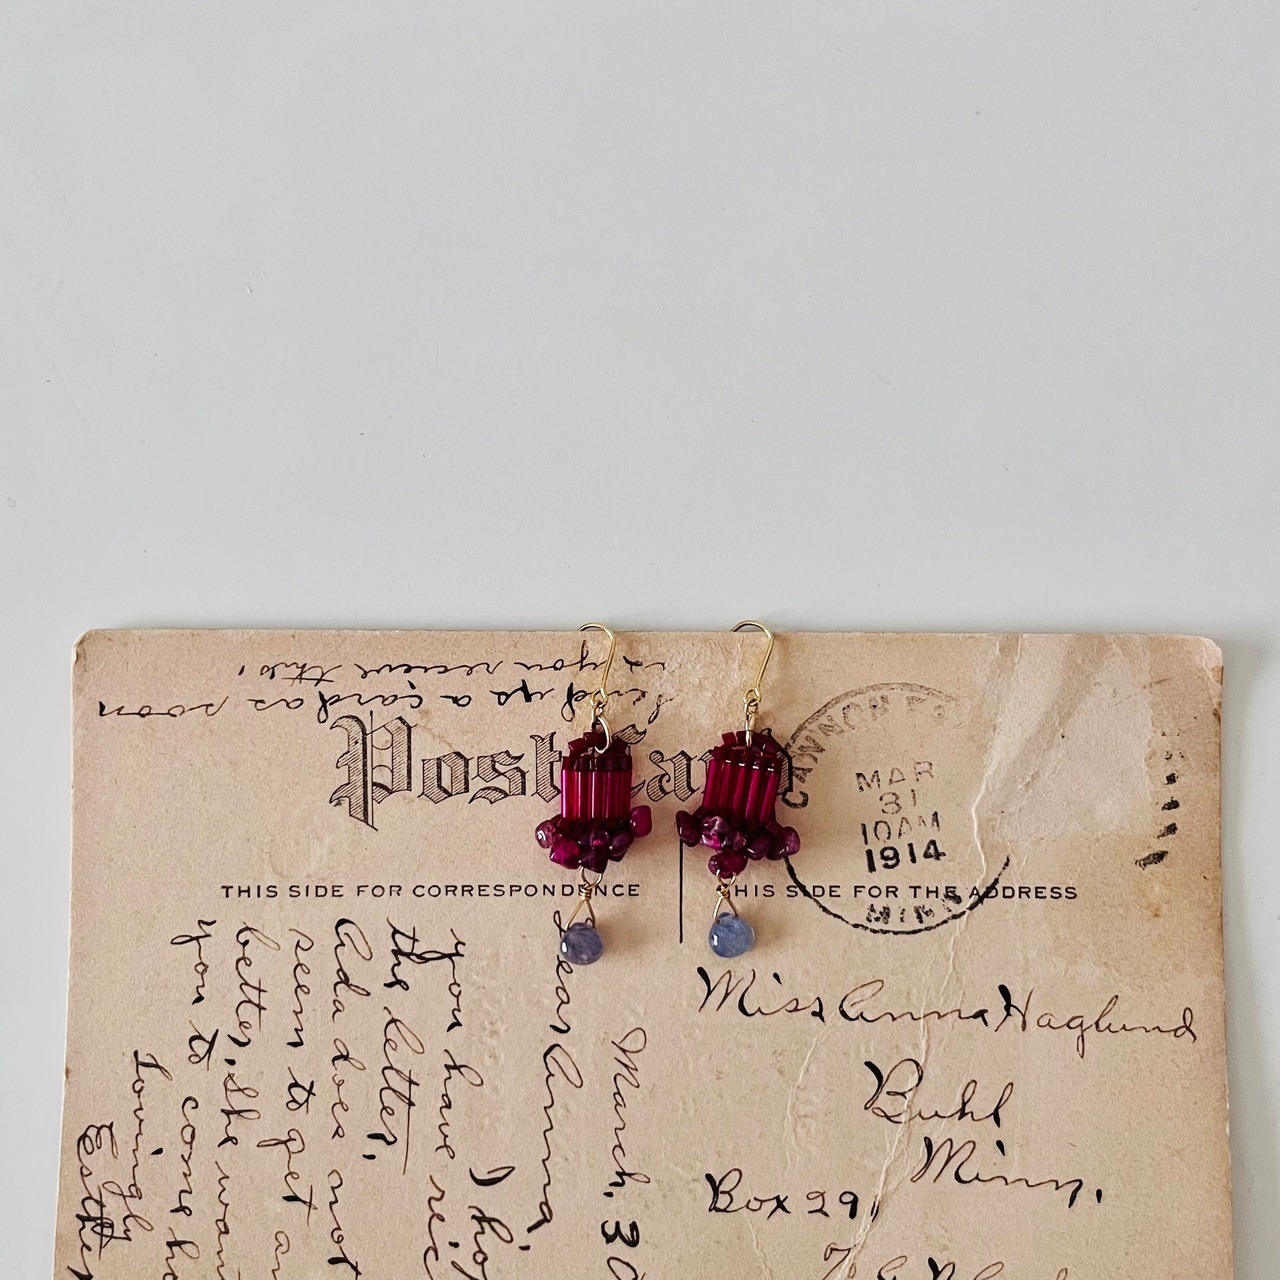 Send us a card as soon
as you recieve this!
Post Card
CANNON FA
MAR
31
10 AM
1914
MINN
THIS SIDE FOR CORRESPONDENCE
THIS SIDE FOR THE ADDRESS
March, 30
Dear Anna,
I ho
you have rec
the letter.
Ada does not
seem to get an
better. She wan
you to come ho
Lovingly
Esther
Miss Anna Haglund
Buhl
Minn.
Box 291